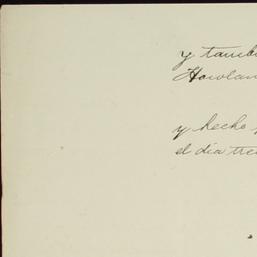 y tamb
Howlan
y hecho
el día tre